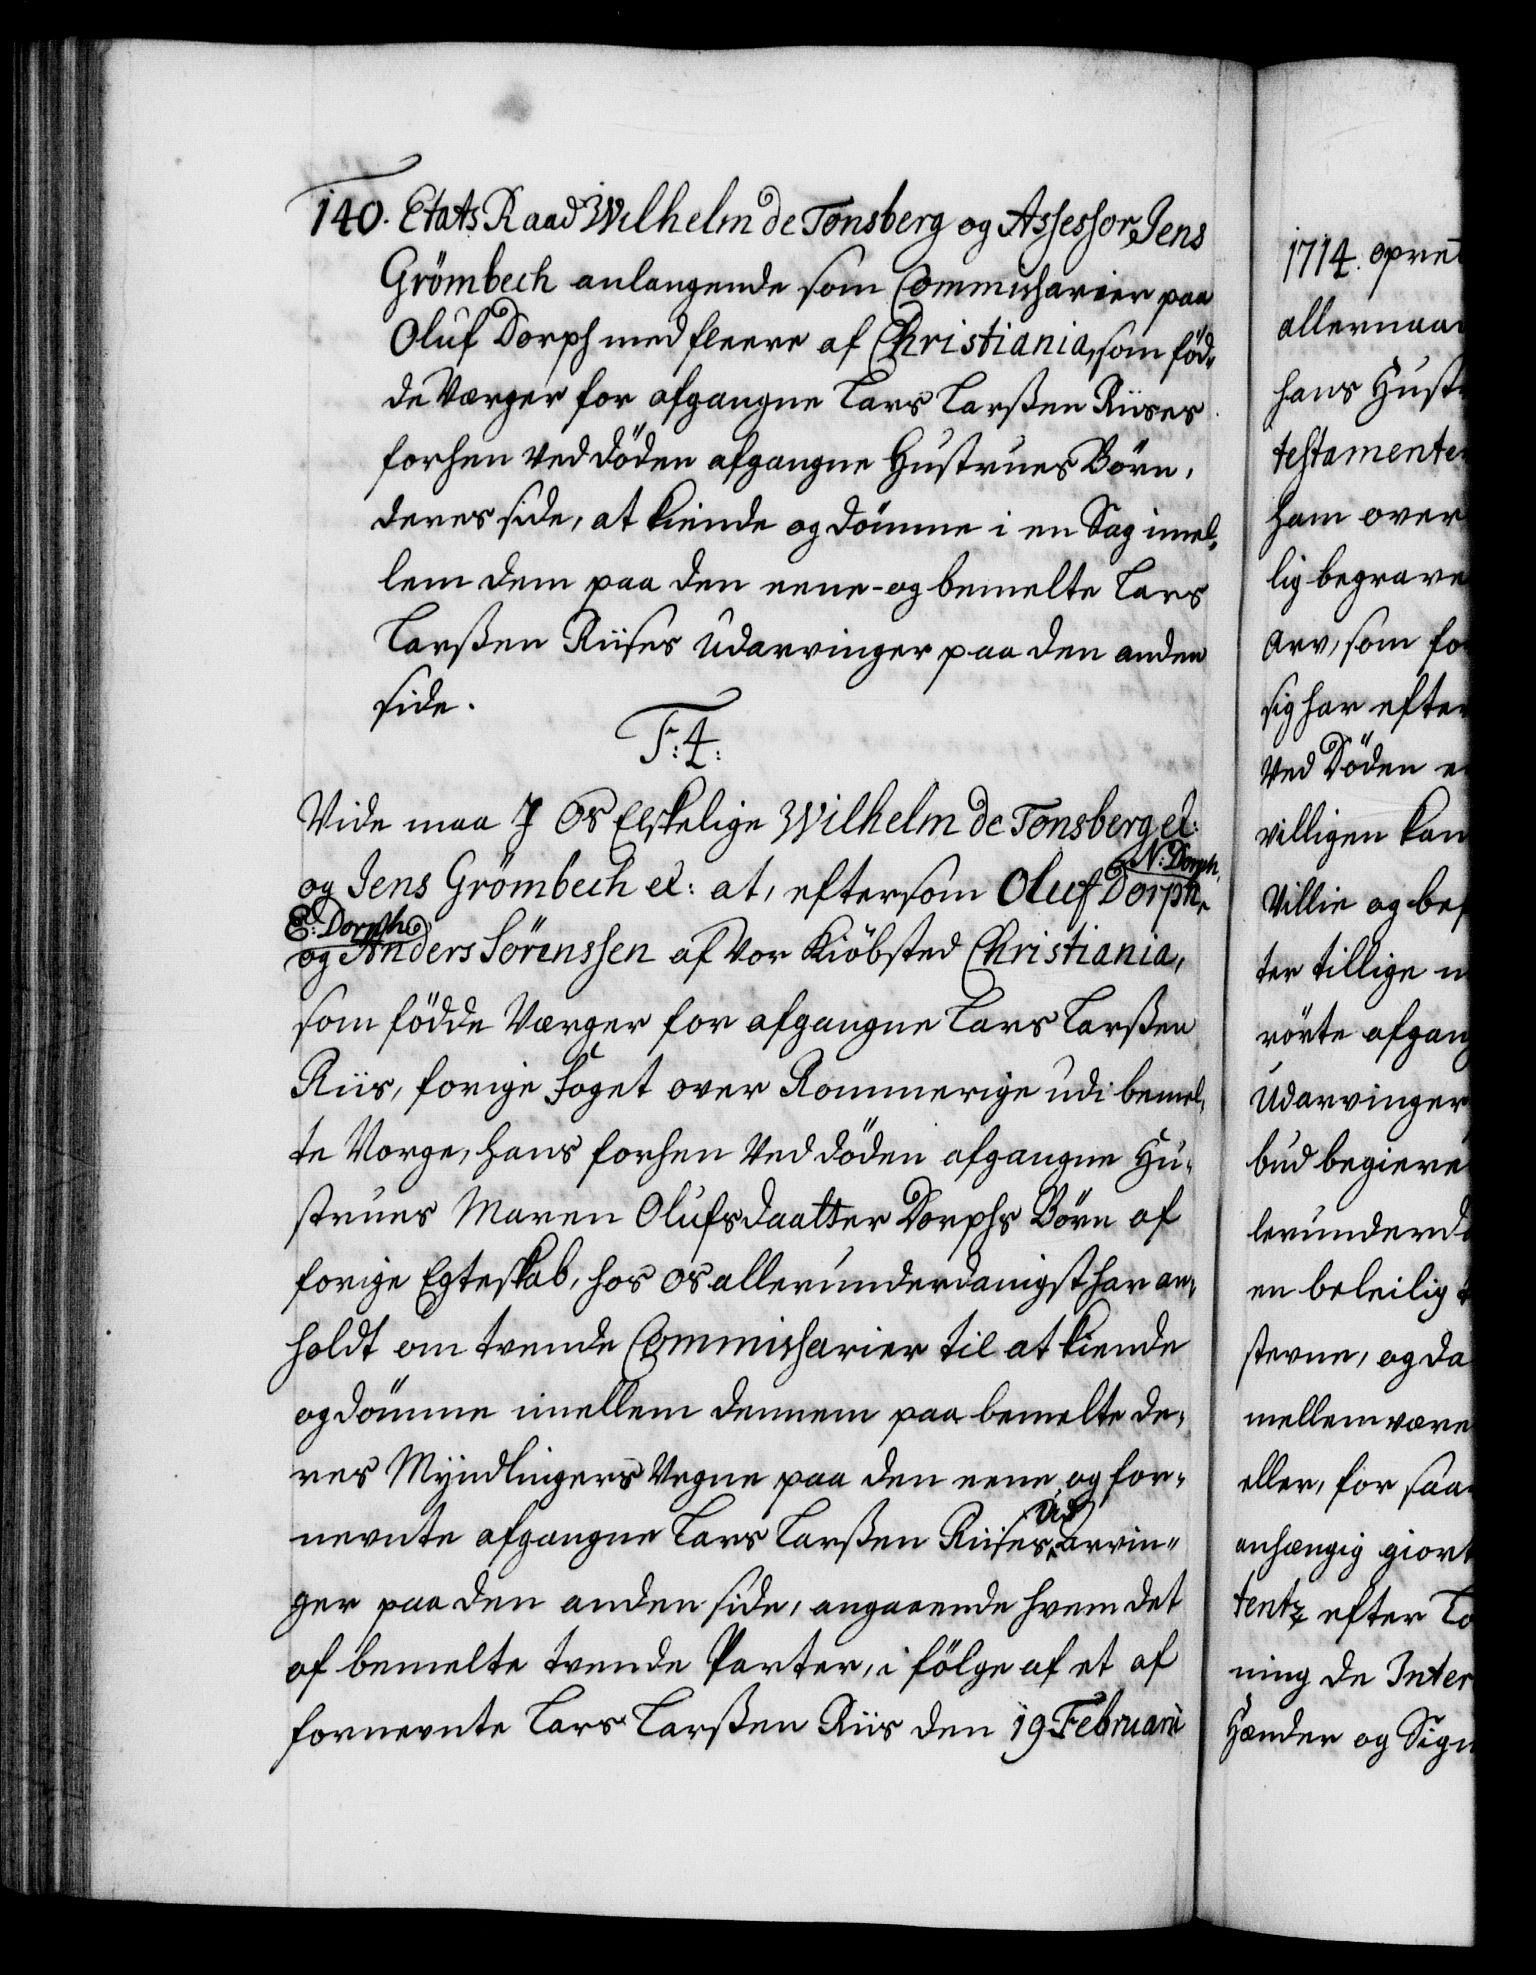 140. Etats Raad Wilhelm de Tonsberg og Assessor Jens
Grömbech anlangende som Commissarier paa
Oluf Dorph med fleere af Christiania, som fød-
de Værger for afgangne Lars Larßen Riises
forhen ved døden afgangne Hustrues Børn,
deres side, at kiende og dømme i en Sag imel-
lem dem paa den eene- og bemelte Lars
Larßen Riises Udarvinger paa den anden
side.
F: 4.
Vide maa I Os Elskelige Wilhelm de Tonsberg et:
og Jens Grömbech et: at, eftersom Oluf Dorph, N: Dorph,
E: Dorph
og Anders Sörenssen af Vor Kiøbsted Christiania,
som fødde Værger for afgangne Lars Larßen
Riis, forige Foget over Rommerige udi bemel-
te Norge, hans forhen ved døden afgangne Hu-
strues Maren Olufsdaatter Dorphs Børn af
forige Egteskab, hos Os allerunderdanigst har an-
holdt om tvende Commissarier til at kiende
og dømme imellem dennem paa bemelte de-
res Myndlingers Vegne paa den eene og for-
nevnte afgangne Lars Larßen Riises Ud arvin-
ger paa den anden side, angaaende hvem det
af bemelte tvende Parter, i følge af et af
fornevnte Lars Larßen Riis den 19 Februarii
1714. opret
allernaa
hans Hust
testamente
ham over
lig begrave
Arv, som fo
sig har efter
Ved Døden
villigen kan
Villie og bef
ter tillige
rørte afgang
Udarvinger
bud begiere
lerunderd
en beleilig
stevne, og da
mellem være
eller, for saa
anhængig giort
tentz efter Lo
ning de Inter
Hænder og Sign